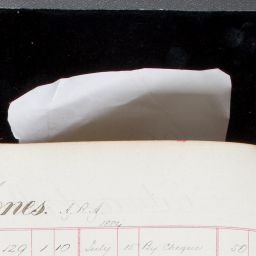 ones. A.R.A.
1884
129 1 10 July 15 By Cheque 50